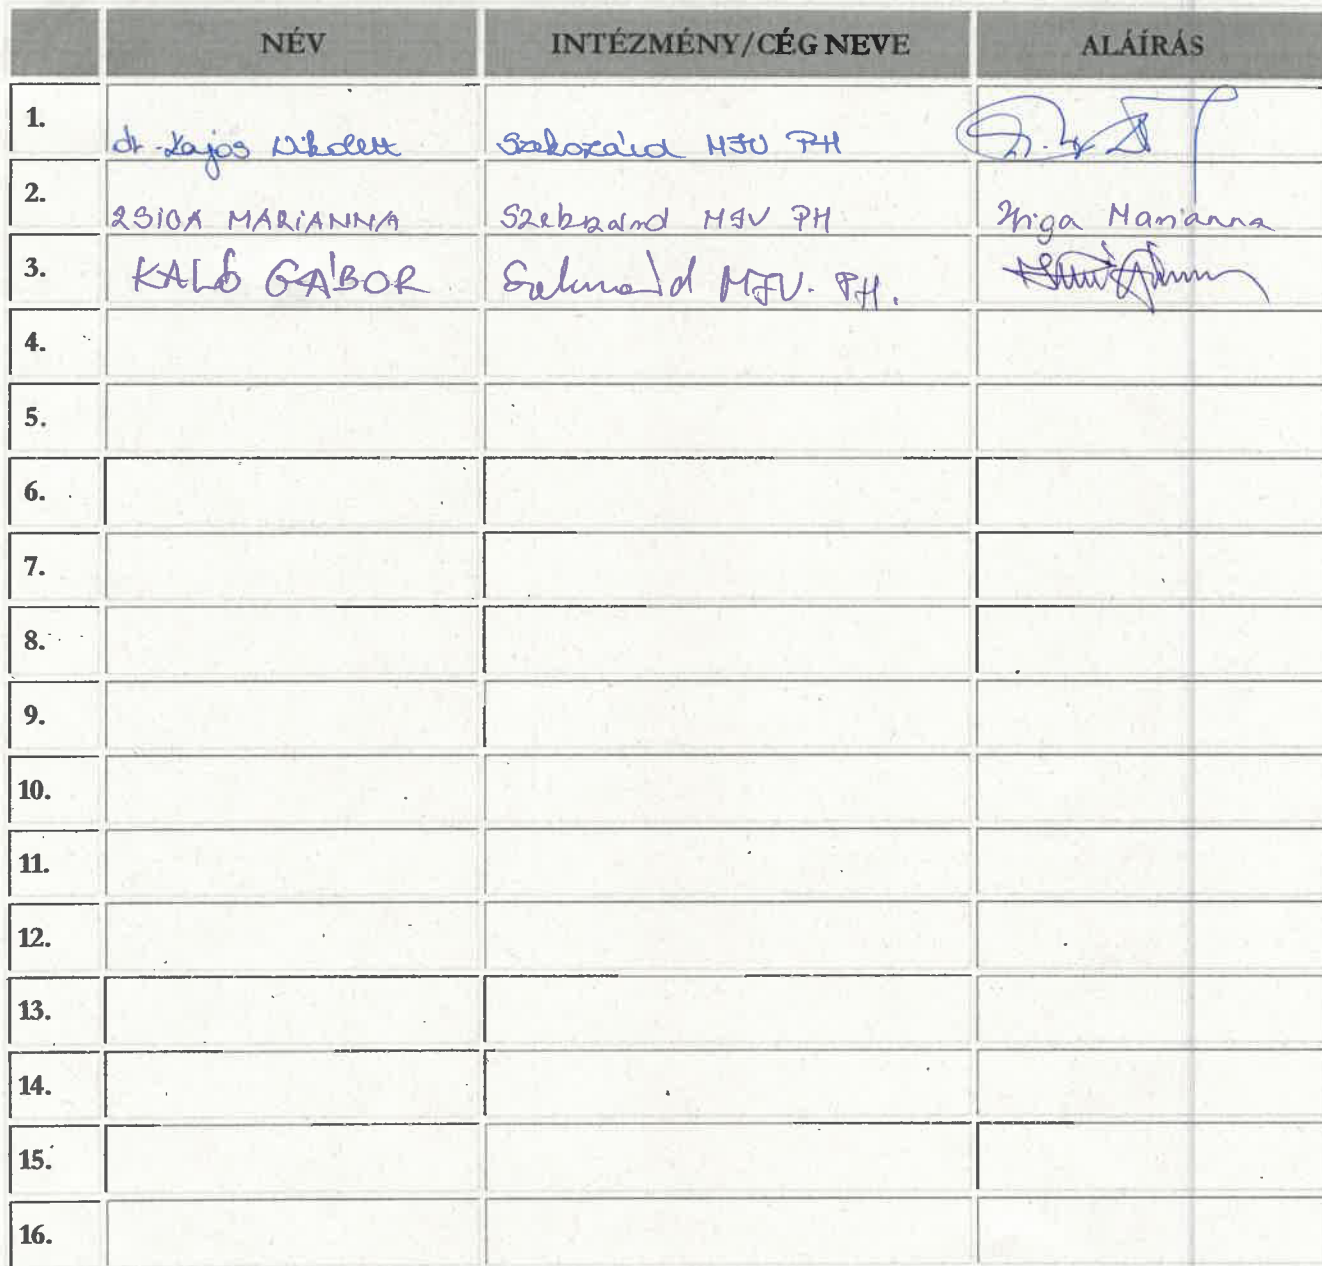 NÉV INTÉZMÉNY/CÉG NEVE ALÁÍRÁS
1. dr. Kajos Nikolett Szekszárd MJV PH
2. ZSIGA MARIANNA Szekszárd MJV PH Zsiga Marianna
3. KALÓ GÁBOR Szekszárd MJV. PH.
4.
5.
6.
7.
8.
9.
10.
11.
12.
13.
14.
15.
16.